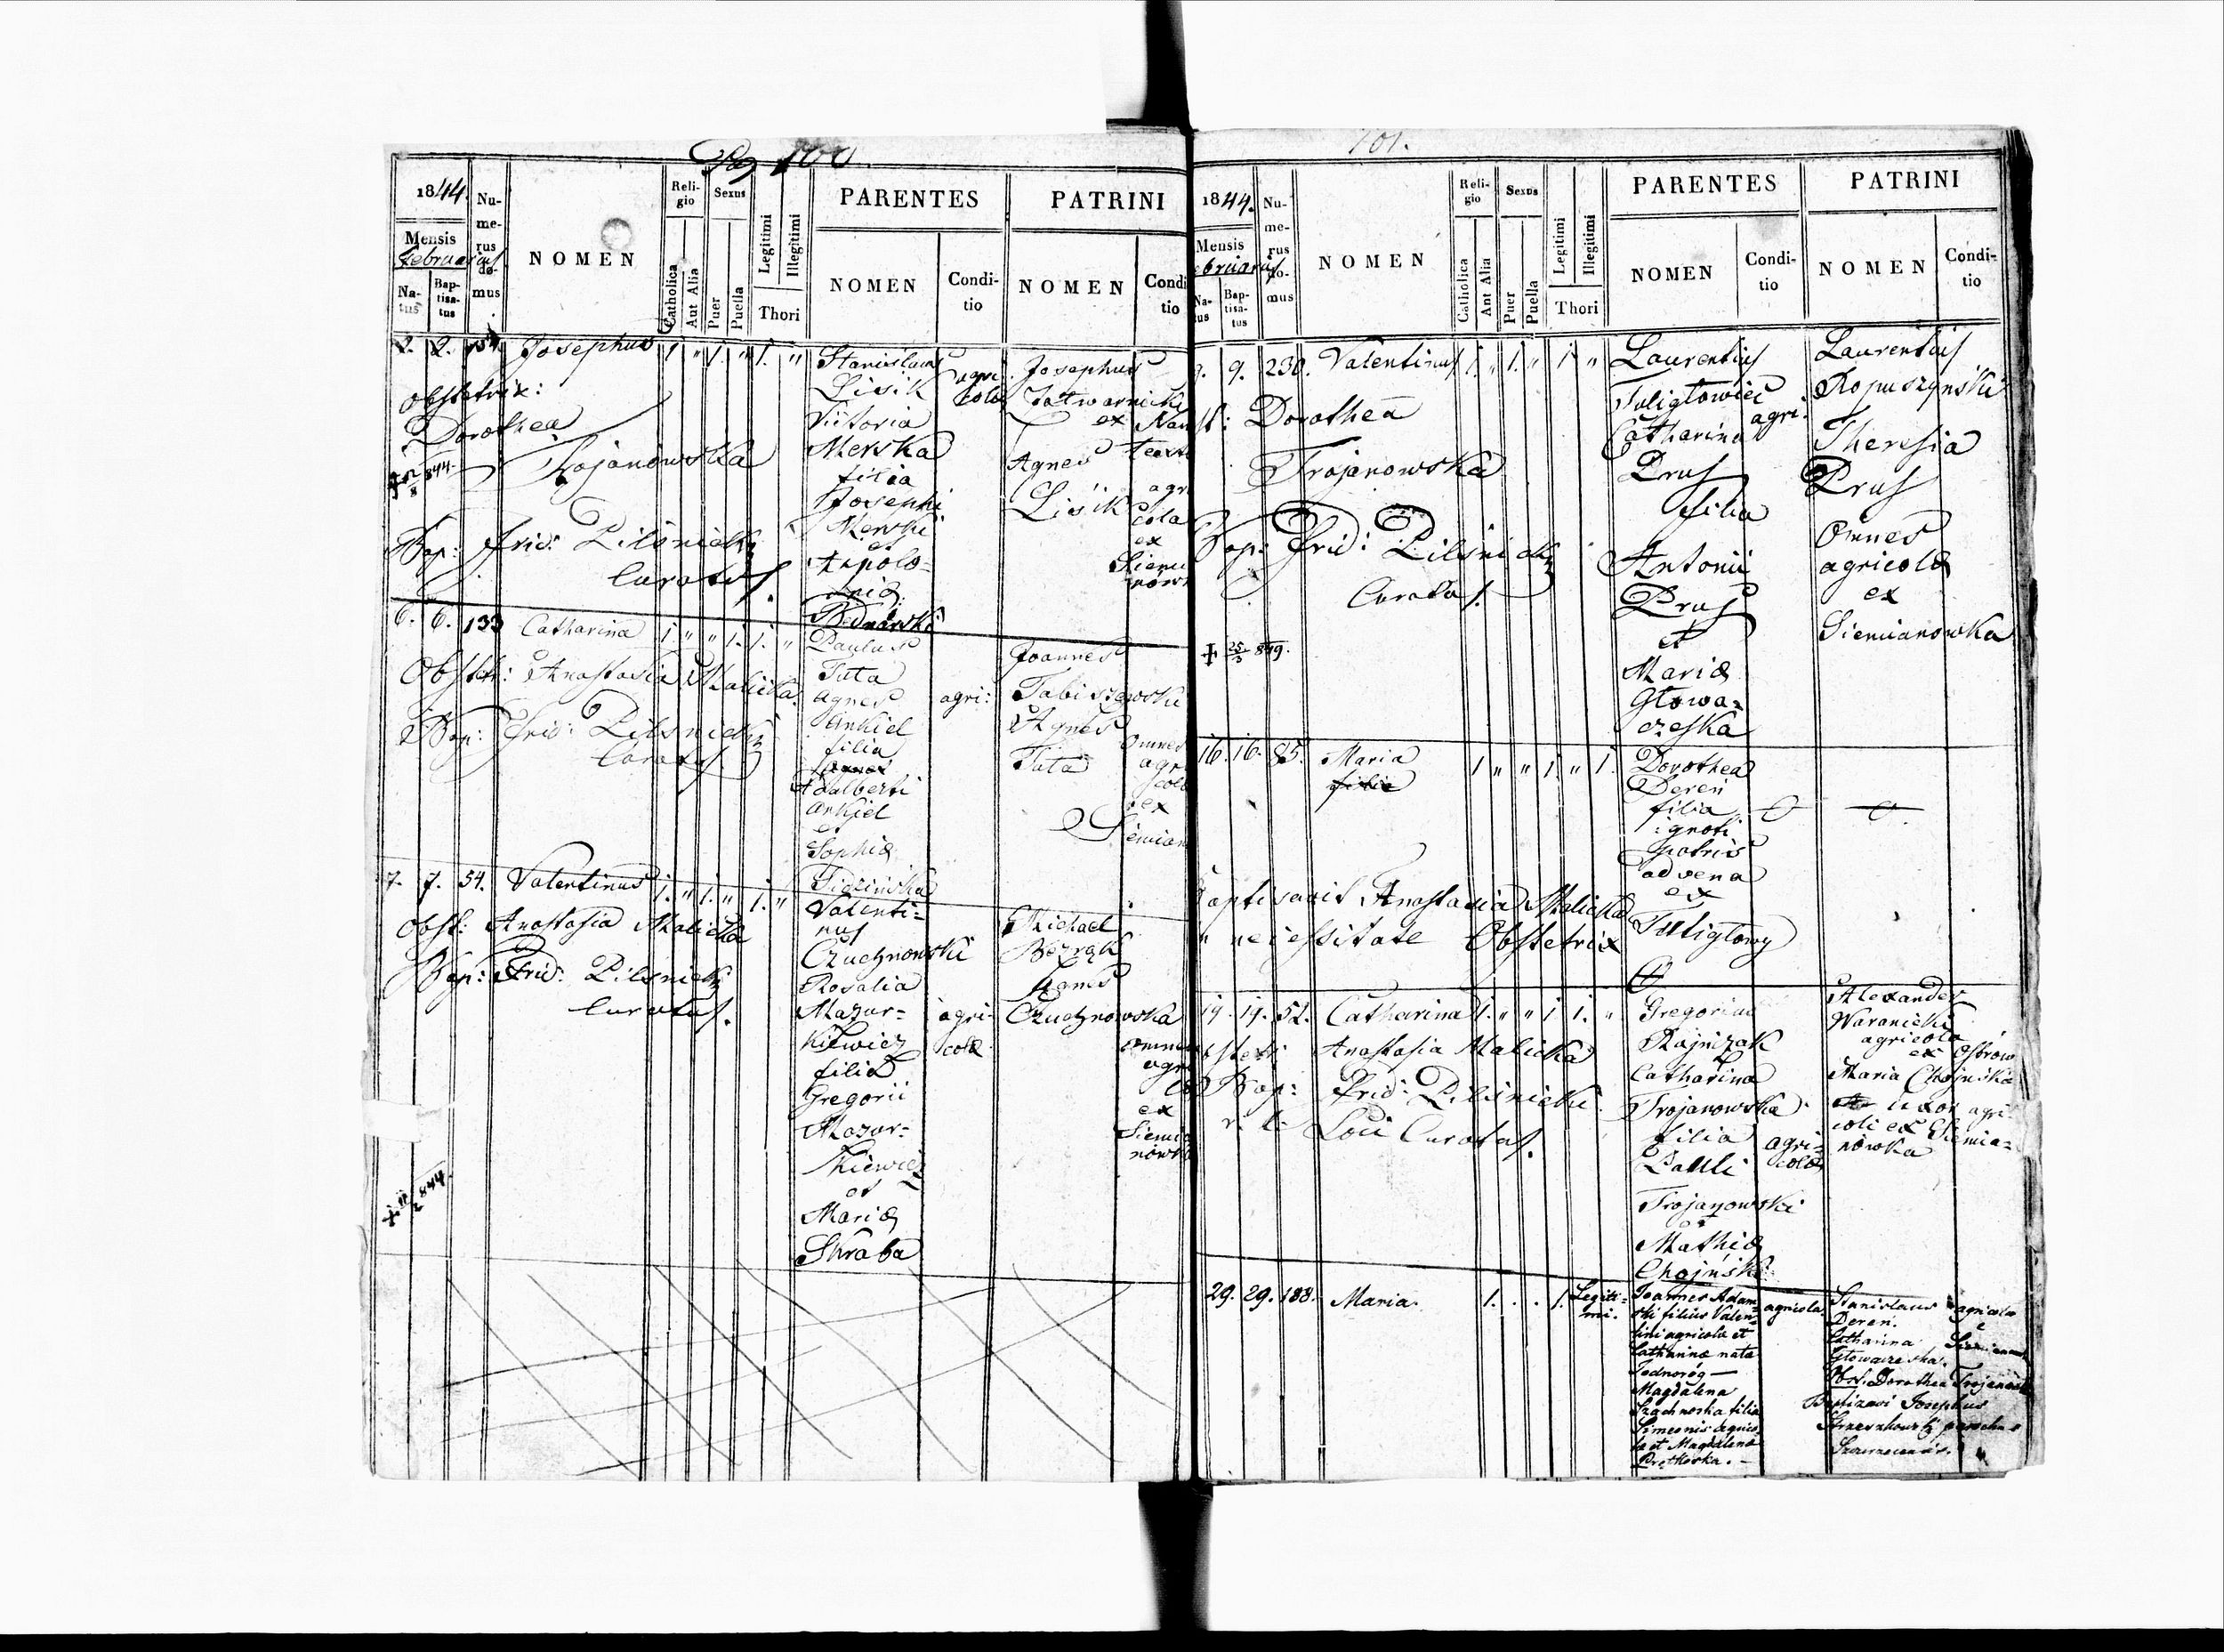 Pag 100.
1844.
Mensis
Februarius
Natus
Baptisatus
Numerus domus
NOMEN
Religio
Catholica
Aut Alia
Sexus
Puer
Puella
Legitimi
Illegitimi
Thori
PARENTES
NOMEN
Conditio
PATRINI
NOMEN
Condi
tio
2. 2. Josephus 1 " 1. " 1. "
Obstetrix:
Dorothea
Trojanowska
Bap: Frid: Pilsnicki
Curatus
Stanislaus
Lisik
Victoria
Merska
filia
Josephi
Merski
et
Appolo=
nia
Bednarski
agri
cola
Josephus
ex
Agnes
Lisik
agri
cola
ex
Siemia
nowk
6. 6. 133 Catharina 1. " " 1. 1. "
Obstetr: Anastasia Malicka
Bap: Frid: Pilsnicki
Curatus.
Paulus
Tuta
Agnes
Ankiel
filia
Adalberti
Ankiel
et
Sophia
agri:
Joannes
Tabiszewski
Agnes
Tuta
Omnes
agri
cola
ex
Siemian
7. 7. 54. Valentinus 1. " 1. " 1. "
Obst: Anastasia Malicka
Bap: Frid: Pilsnicki
Curatus.
Valenti=
nus
Czuchnowski
Rosalia
Mazur=
kiewicz
filia
Gregorii
Mazur=
kiewicz
et
Maria
Skraba
agri
cola
Michael
Agnes
Czuchnowska
omnes
agri
co
ex
Siemia
nowk
101.
1844.
Mensis
bruarius
Na-
tus
Bap-
tisa-
tus
Nu-
me-
rus
do-
mus
NOMEN
Reli-
gio
Catholica
Aut Alia
Sexus
Puer
Puella
Legitimi
Illegitimi
Thori
PARENTES
NOMEN
Condi-
tio
PATRINI
NOMEN
Condi-
tio
9. 9. 230. Valentinus 1. " 1. " 1 "
st: Dorothea
Trojanowska
Bap: Frid: Pilsnicki
Curatus.
+ 25/3 849.
Laurentius
Tuligłowicz
Catharina
Prus
filia
Antonii
Prus
et
Maria
Głowa=
czeska
agri.
Laurentius
Ropuszynski
Theresia
Prus
Omnes
agricola
ex
Siemianowka
16. 16. 85. Maria 1 " " 1. " 1.
filia
Baptisavit Anastasia Malicka
in necessitate Obstetrix
Dorothea
Deren
filia
ignoti
patris
advena
ex
Tuligłowy
19. 19. 52. Catharina 1. " " 1 1. "
obstetr: Anastasia Malicka
Bap: Frid: Pilsnicki
Loci Curatus.
Gregorius
Catharina
Trojanowska
filia
Pauli
Trojanowski
et
Mathia
Chojnski
agri=
cola
Alexander
Waranicki
agricola
ex Ostrow
Maria Chojnska
uxor agri
coli ex Siemia=
nowka
29. 29. 188. Maria. 1. . . 1. Legiti=
mi.
Joannes Adam=
ski filius Valen=
tini agricola et
Catharinæ nata
Jednoróg —
Magdalena
Szachnoska filia
Simeonis agrico
la et Magdalenæ
agricola
Stanislaus agricola
Deren. e
Catharina
Głowaczeska.
Obst. Dorothea Trojanows
Baptizavi Josephus
parochus